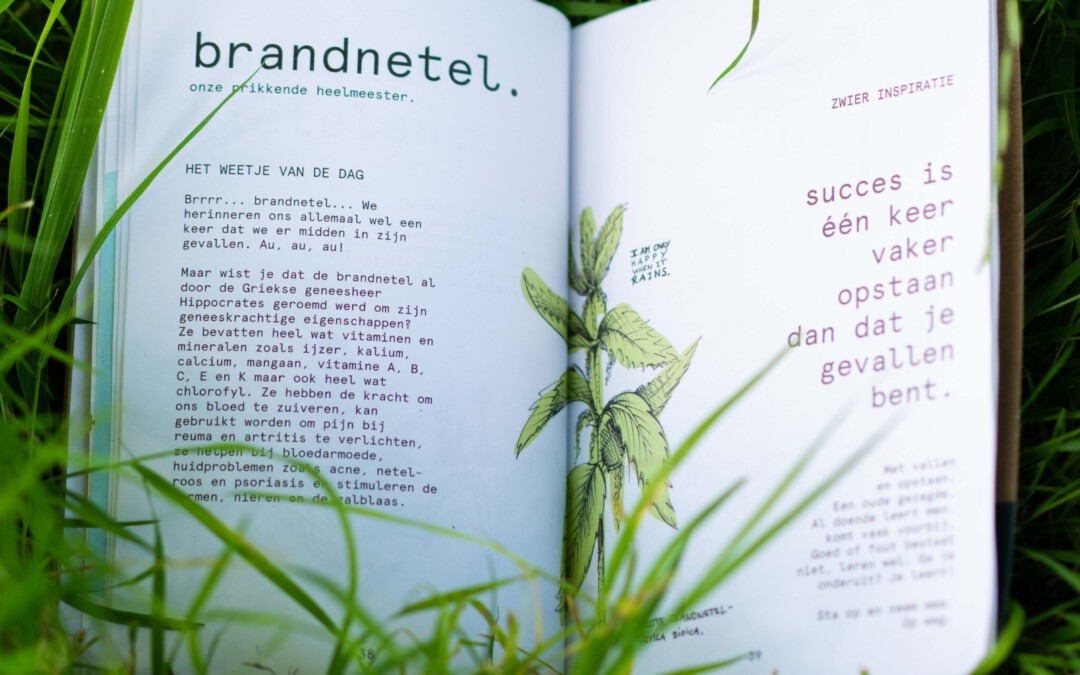 brandnetel.
onze prikkende heelmeester.
HET WEETJE VAN DE DAG
Brrrr... brandnetel... We
herinneren ons allemaal wel een
keer dat we er midden in zijn
gevallen. Au, au, au!
Maar wist je dat de brandnetel al
door de Griekse geneesheer
Hippocrates geroemd werd om zijn
geneeskrachtige eigenschappen?
Ze bevatten heel wat vitaminen en
mineralen zoals ijzer, kalium,
calcium, mangaan, vitamine A, B,
C, E en K maar ook heel wat
chlorofyl. Ze hebben de kracht om
ons bloed te zuiveren, kan
gebruikt worden om pijn bij
reuma en artritis te verlichten,
ze helpen bij bloedarmoede,
huidproblemen zoals acne, netel-
roos en psoriasis en stimuleren de
darmen, nieren en de galblaas.
38
ZWIER INSPIRATIE
succes is
één keer
vaker
opstaan
dan dat je
gevallen
bent.
I AM ONLY
HAPPY
WHEN IT
RAINS.
Met vallen
en opstaan.
Een oude gezegde.
Al doende leert men,
komt vaak voorbij.
Goed of fout bestaat
niet, leren wel. Ga je
onderuit? Je leert!
Sta op en neem mee.
Op weg.
BRANDNETEL-
DIOICA.
39